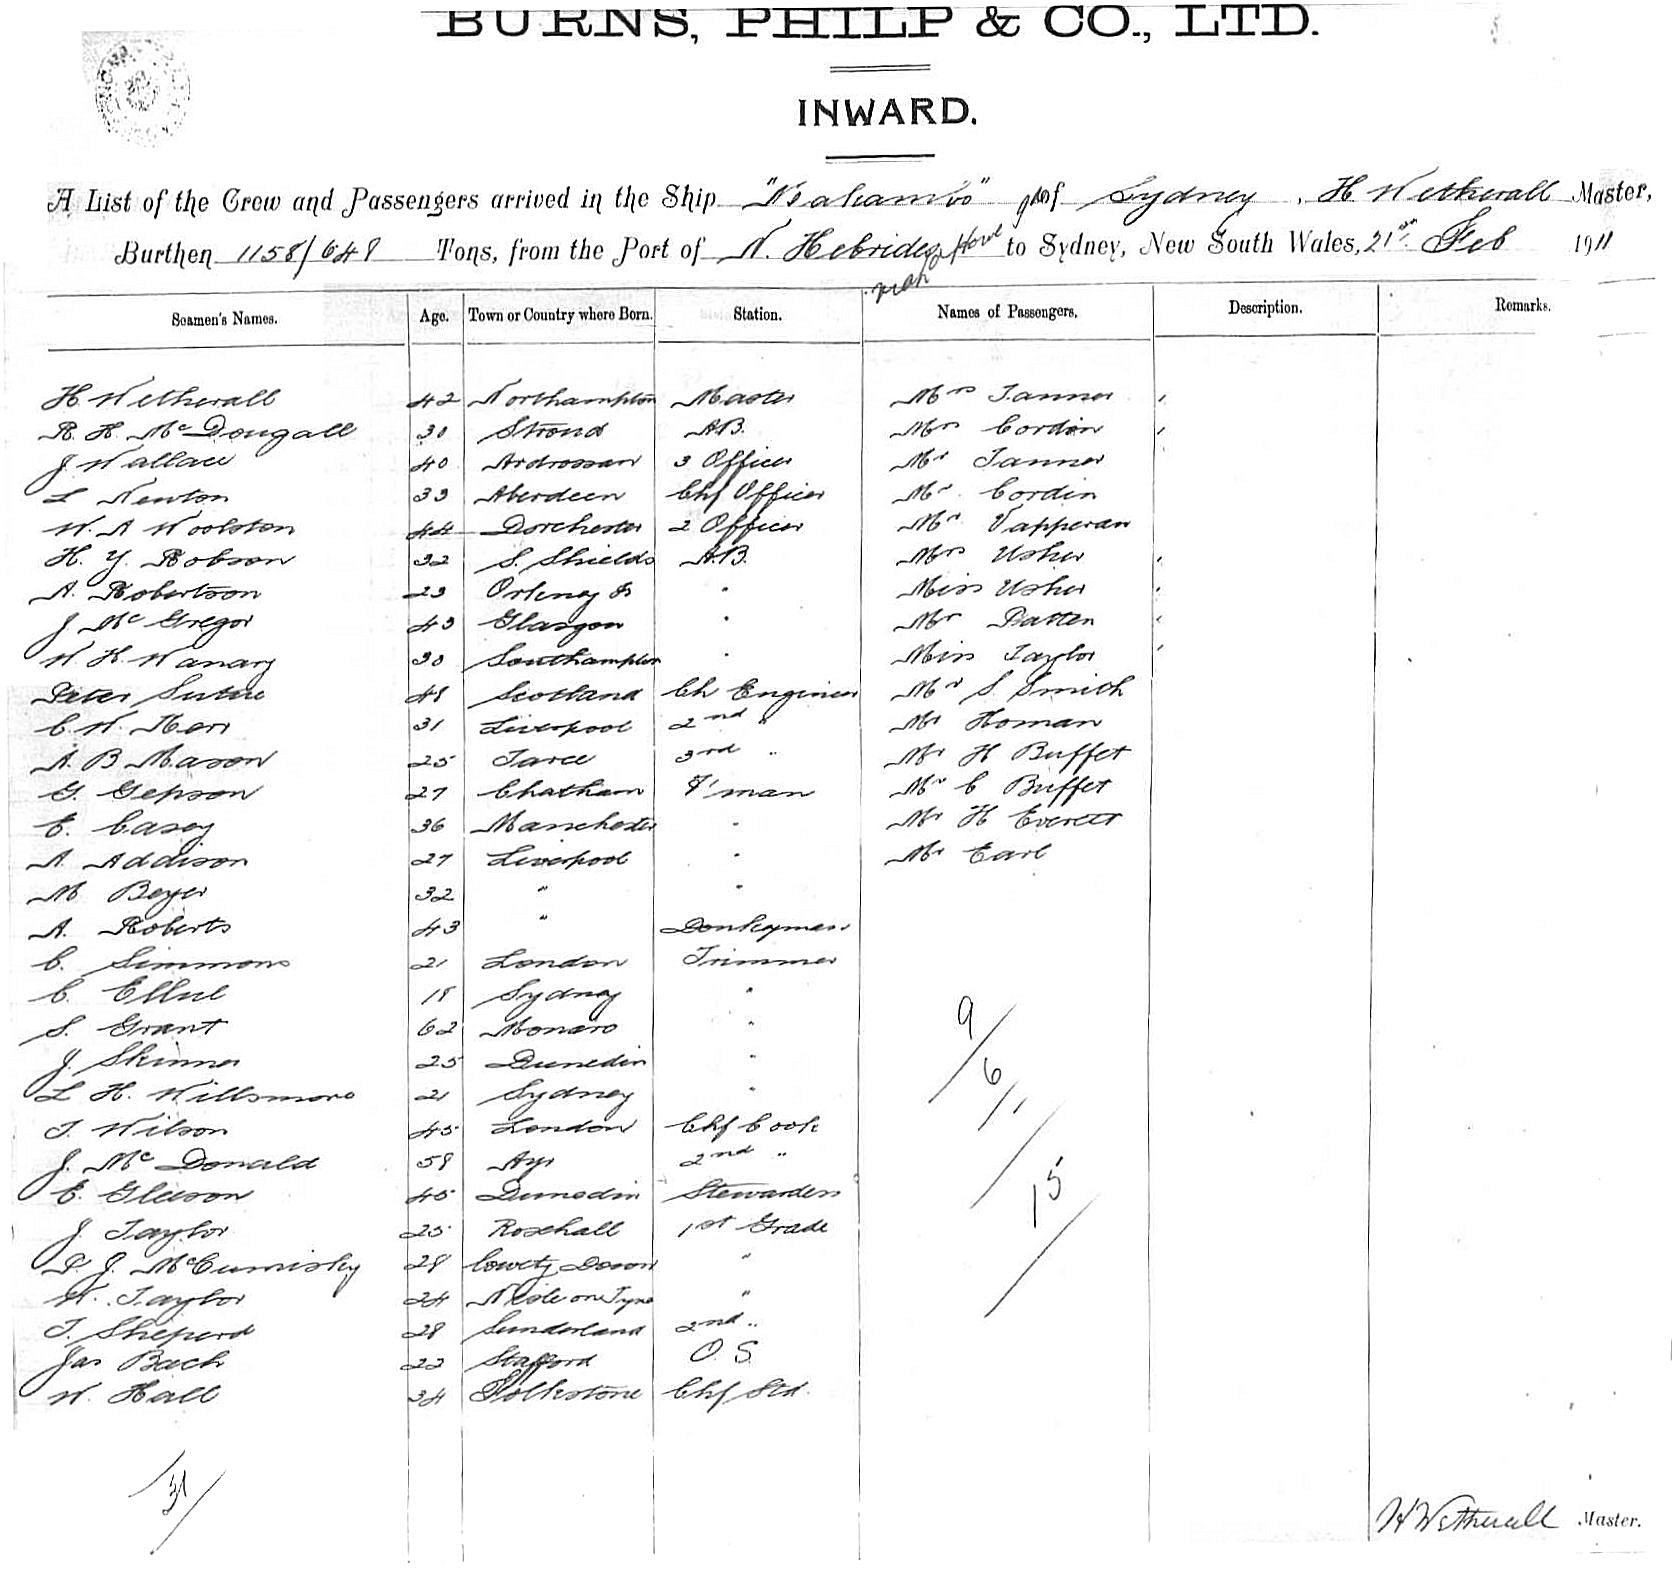 BURNS, PHILP & CO., LTD.
INWARD.
A List of the Crew and Passengers arrived in the Ship "Makambo" of Sydney, H Wetherall Master,
Burthen 1158/648 Tons, from the Port of N. Hebrides to Sydney, New South Wales, 21st Feb 1911
Seamen's Names. Age. Town or Country where Born. Station. Names of Passengers. Description. Remarks.
H. Wetherall 42 Northampton Master Mrs Tanner
R. H. McDougall 30 Stroud A.B. Mrs Cordin
J Wallace 40 Ardrossan 3 Officer Mr Tanner
L Newton 33 Aberdeen Chf Officer Mr Cordin
W. A Woolston 44 Dorchester 2 Officer Mr Vapperan
H. Y. Robson 32 S. Shields A.B. Mrs Usher
A. Robertson 23 Orkney Is " Miss Usher
J McGregor 43 Glasgow " Mr Batten
W. H. 30 Southampton " Miss Taylor
Peter 48 Scotland Ch Engineer Mr S. Smith
C. W. Kerr 31 Liverpool 2nd " Mr Homan
A. B Mason 25 3rd " Mr H Buffet
G. Gepson 27 Chatham F'man Mr C Buffet
E. Casey 36 Manchester " Mr H Everett
A. Addison 27 Liverpool " Mr Earl
M Beyer 32 " "
A. Roberts 43 " Donkeyman
C. Simmons 21 London Trimmer
C. Ellul 18 Sydney "
S. Grant 62 Monaro "
J. Skinner 25 Dunedin "
L H. Willsmore 21 Sydney "
T Wilson 45 London Chf Cook
J. McDonald 58 Ayr 2nd "
E. Gleeson 45 Dunedin Stewardess
J Taylor 25 Rosehall 1st Grade
P. J. McCumisky 28 County Down "
W. Taylor 24 "
T. Sheperd 28 Sunderland 2nd "
Jas Bach 22 Stafford O. S.
W. Hall 34 Folkstone Chf Std.
9/
6/1
15/
31/
H Wetherall Master.